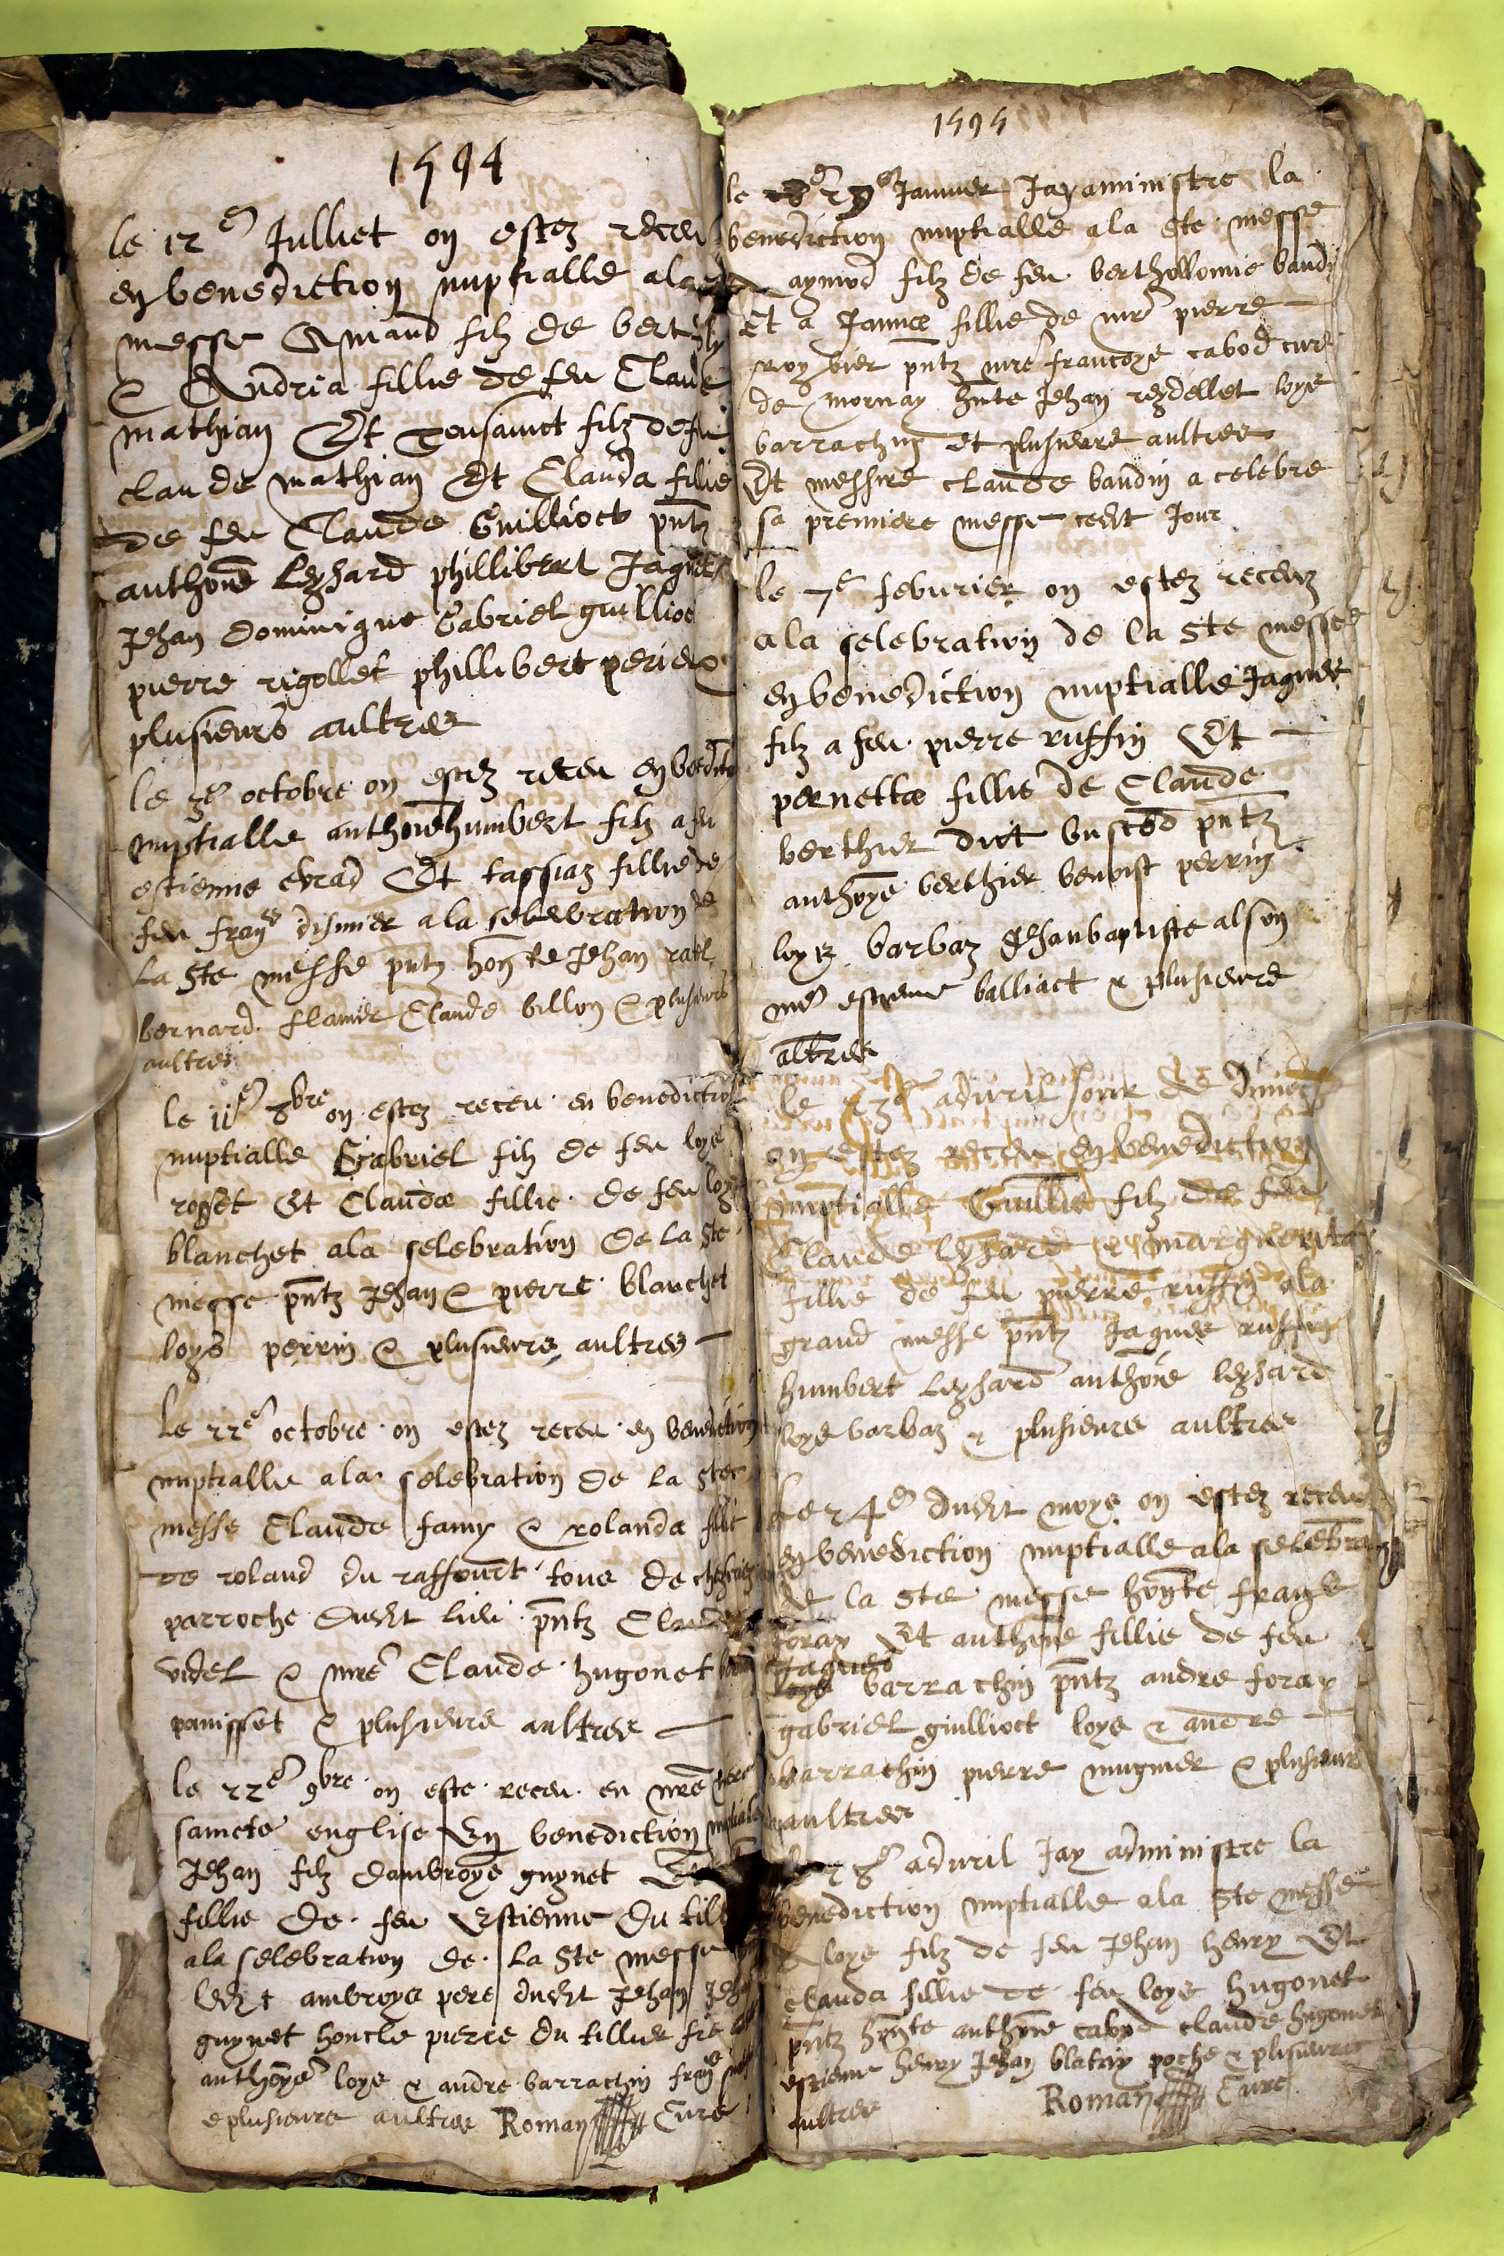 1594
le 12e Julliet on estez receu
en benediction nuptialle a la
messe Amand filz de
& Andria fillie de feu Claude
mathian Et Tousainct filz de feu
claude mathian Et Clauda fillie
de feu Claude Guillioct pntz
anthoine Leysard phillibert Jaques
Jehan dominique Gabriel guillioct
pierre rigollet phillibert perier &
plusieurs aultres
le 3e octobre on estez receu en
nuptialle anthoine humbert filz a feu
estienne evrad Et tassiaz fillie de
feu frays dismier a la selebration de
la Ste messe pntz honte Jehan
bernard flamier Claude billon & plusieurs
aultres
le 11e 8bre on estez receu en benediction
nuptialle Gabriel filz de feu loys
rosset Et Claudæ fillie de feu loys
blanchet a la selebration de la Ste
messe pntz Jehan & pierre blanchet
loys perrin & plusieurs aultres
le 22e octobre on estez receu en benediction
nuptialle a la selebration de la Ste
messe Claude famy & rolanda fillie
de roland du raffourt tous de
parroche dudit lieu pntz Claude
videl & mre Claude hugonet
panisset & plusieurs aultres
le 22e 9bre on este receu en nre mere
saincte englise En benediction nuptialle
Jehan filz dambroys guynet Et
fillie de feu Estienne du
a la selebration de la Ste messe
ledit ambroys pere dudit Jehan Jehan
guynet honcle pierre du tillier
anthoyne loys & andre barrachin
e plusieurs aultres Roman Curé
1595
le 29e Januier Jay aministre la
benediction nuptialle a la Ste messe
A aymod filz de feu berthollomie baudin
Et a Jannæ fillie de mre pierre
pntz mre francoys cabod curé
de mornay honte Jehan reydellet loys
barrachin et plusieurs aultres
Et messire claude baudin a celebre
sa premiere messe cedit Jour
le 7e feburier on estez receuz
a la selebration de la Ste messe
en benediction nuptialle Jaques
filz a feu pierre ruffin Et
pernettæ fillie de Claude
berthier dict buscod pntz
anthoyne berthier benoist perrin
loys barbaz Jehan baptiste alson
mre estienne balliact & plusieurs
altres
le 23e apvril Jour de
on estez receu en benediction
nuptialle Guillie filz de feu
Claude leysard & marguerita
fillie de feu pierre ruffin a la
grand messe pntz Jaques ruffin
humbert Leysard anthoine leysard
loys barbaz & plusieurs aultres
le 24e dudit moys on estez receu
en benediction nuptialle a la selebration
de la Ste messe honte frays
foray Et anthoine fillie de feu
Jaques
loys barrachin pntz andre foray
gabriel guillioct loys & andre
barrachin pierre mugnier & plusieurs
aultres
28e apvril Jay administre la
benediction nuptialle a la Ste messe
A loys filz de feu Jehan henry Et
clauda fillie de feu loys hugonet
pntz honte anthoine cabod claude hugonet
estienne henry Jehan blatrix poche & plusieurs
aultres Roman Curé